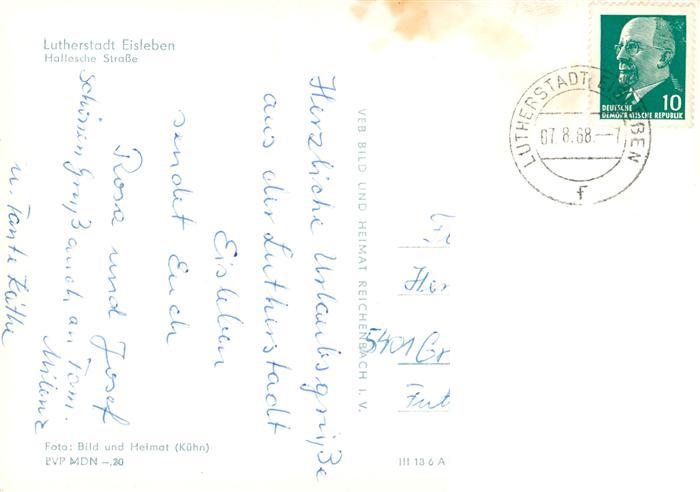 Lutherstadt Eisleben
Hallesche Straße
Herzliche Urlaubsgrüße
aus der Lutherstadt
Eisleben
sendet Euch
Rosa und Josef
schönen Gruß auch an Fam.
u. Tante Käthe
Foto: Bild und Heimat (Kühn)
PVP MDN –,20
VEB BILD UND HEIMAT REICHENBACH I. V.
III 18 6 A
10
DEUTSCHE
DEMOKRATISCHE REPUBLIK
LUTHERSTADT EISLEBEN
07.8.68.–7
f
Her
5401 Gr